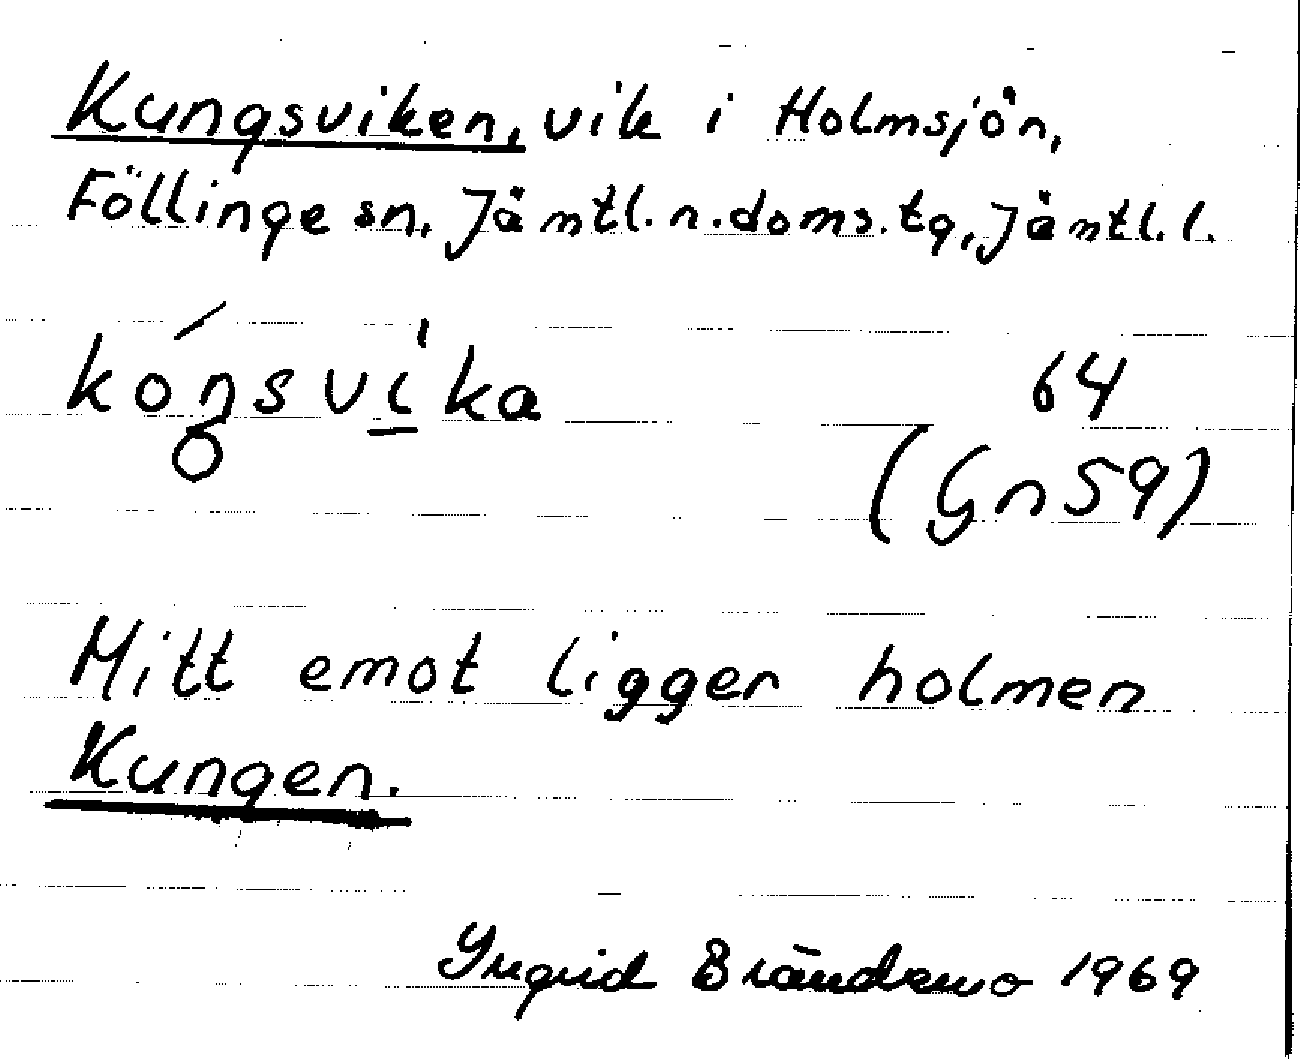 Kungsviken, vik i Holmsjön,
Föllinge sn, Jämtl. n. doms. tg, Jämtl. l.
kóŋsvi̲ka
64
(Gn 59)
Mitt emot ligger holmen
Kungen.
Ingrid Brändemo 1969